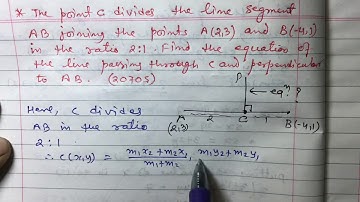 * The point C divides the line segment
AB joining the points A(2,3) and B(-4,1)
in the ratio 2:1. Find the equation of
the line passing through C and perpendicular
to AB. (2070S)
P
← eqⁿ ?
Here, C divides
AB in the ratio
2:1
A 2 C 1 B(-4,1)
(2,3)
∴ C(x,y) = (m₁x₂ + m₂x₁)/(m₁+m₂), m₁y₂ + m₂y₁